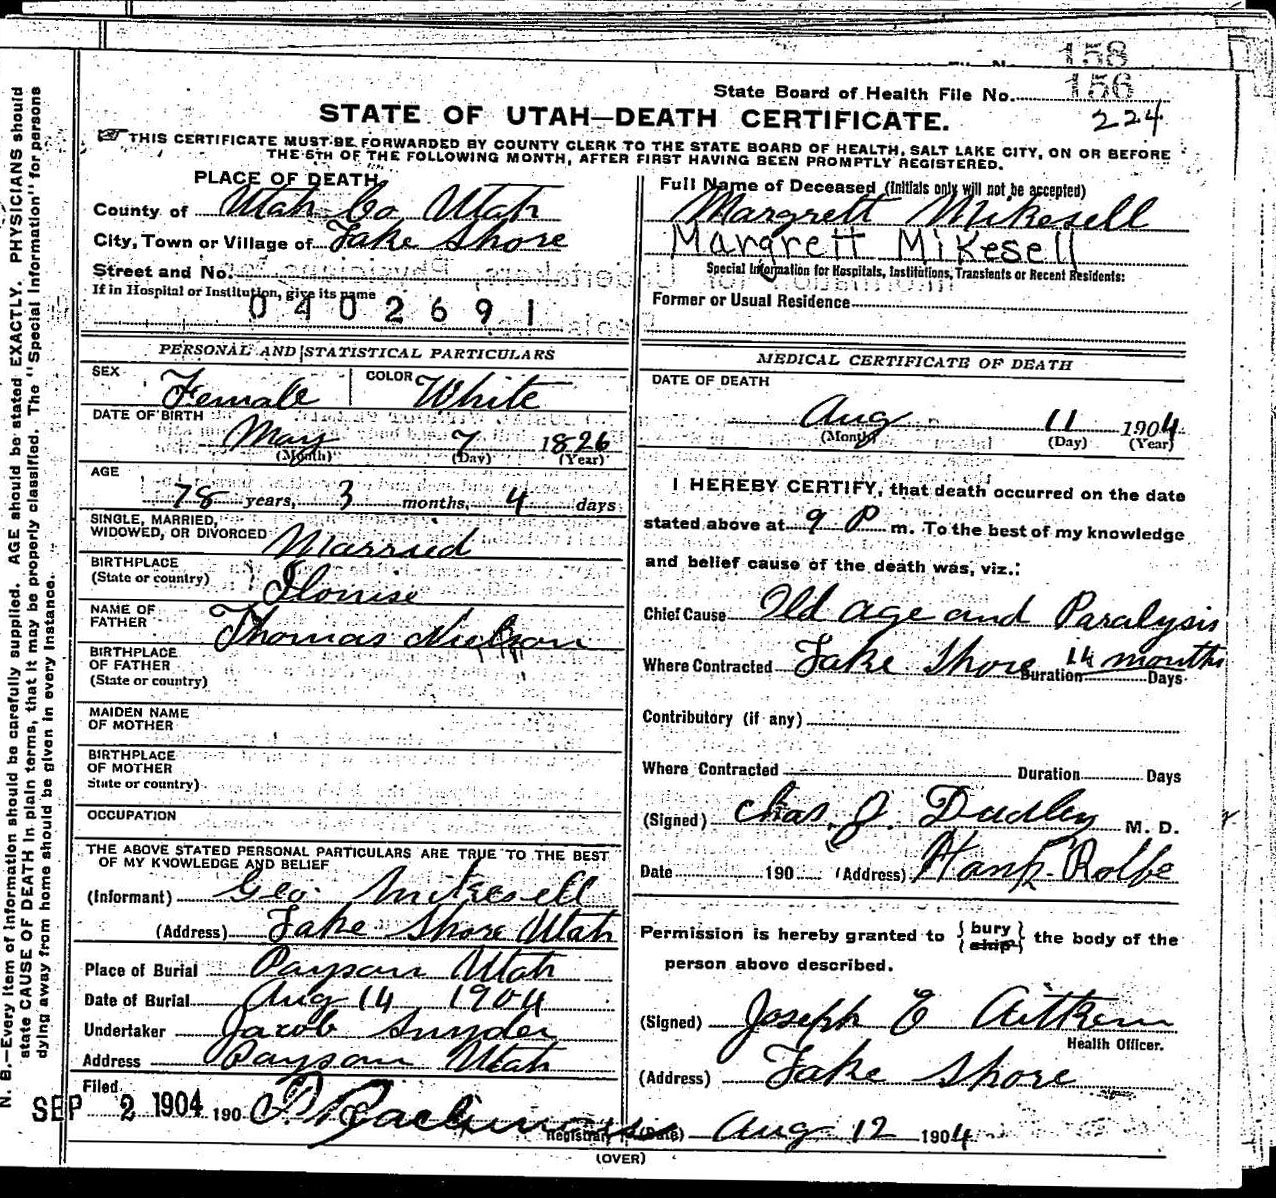 158
State Board of Health File No. 156
224
STATE OF UTAH—DEATH CERTIFICATE.
THIS CERTIFICATE MUST BE FORWARDED BY COUNTY CLERK TO THE STATE BOARD OF HEALTH, SALT LAKE CITY, ON OR BEFORE
THE 5TH OF THE FOLLOWING MONTH, AFTER FIRST HAVING BEEN PROMPTLY REGISTERED.
PLACE OF DEATH
County of Utah Co Utah
City, Town or Village of Lake Shore
Street and No.
If in Hospital or Institution, give its name
0402691
Full Name of Deceased (Initials only will not be accepted)
Margrett Mikesell
Margrett Mikesell
Special Information for Hospitals, Institutions, Transients or Recent Residents:
Former or Usual Residence
PERSONAL AND STATISTICAL PARTICULARS
SEX Female COLOR White
DATE OF BIRTH
May 7 1826
(Month) (Day) (Year)
AGE
78 years, 3 months, 4 days
SINGLE, MARRIED,
WIDOWED, OR DIVORCED Married
BIRTHPLACE
(State or country)
NAME OF
FATHER Thomas
BIRTHPLACE
OF FATHER
(State or country)
MAIDEN NAME
OF MOTHER
BIRTHPLACE
OF MOTHER
State or country)
OCCUPATION
THE ABOVE STATED PERSONAL PARTICULARS ARE TRUE TO THE BEST
OF MY KNOWLEDGE AND BELIEF
(Informant) Geo. Mikesell
(Address) Lake Shore Utah
Place of Burial Payson Utah
Date of Burial Aug 14 1904
Undertaker Jacob Snyder
Address Payson Utah
Filed
SEP 2 1904 190
Registrar
MEDICAL CERTIFICATE OF DEATH
DATE OF DEATH
Aug 11 1904
(Month) (Day) (Year)
I HEREBY CERTIFY, that death occurred on the date
stated above at 9 P m. To the best of my knowledge
and belief cause of the death was, viz.:
Chief Cause Old age and Paralysis
Where Contracted Lake Shore Duration 14 months Days
Contributory (if any)
Where Contracted Duration Days
(Signed) Chas. J. Dudley M. D.
Date 190 (Address)
Permission is hereby granted to {bury ship} the body of the
person above described.
(Signed) Joseph E Aitken
Health Officer.
(Address) Lake Shore
(Date) Aug 12 1904
(OVER)
N. B.—Every item of information should be carefully supplied. AGE should be stated EXACTLY. PHYSICIANS should
state CAUSE OF DEATH in plain terms, that it may be properly classified. The "Special Information" for persons
dying away from home should be given in every instance.